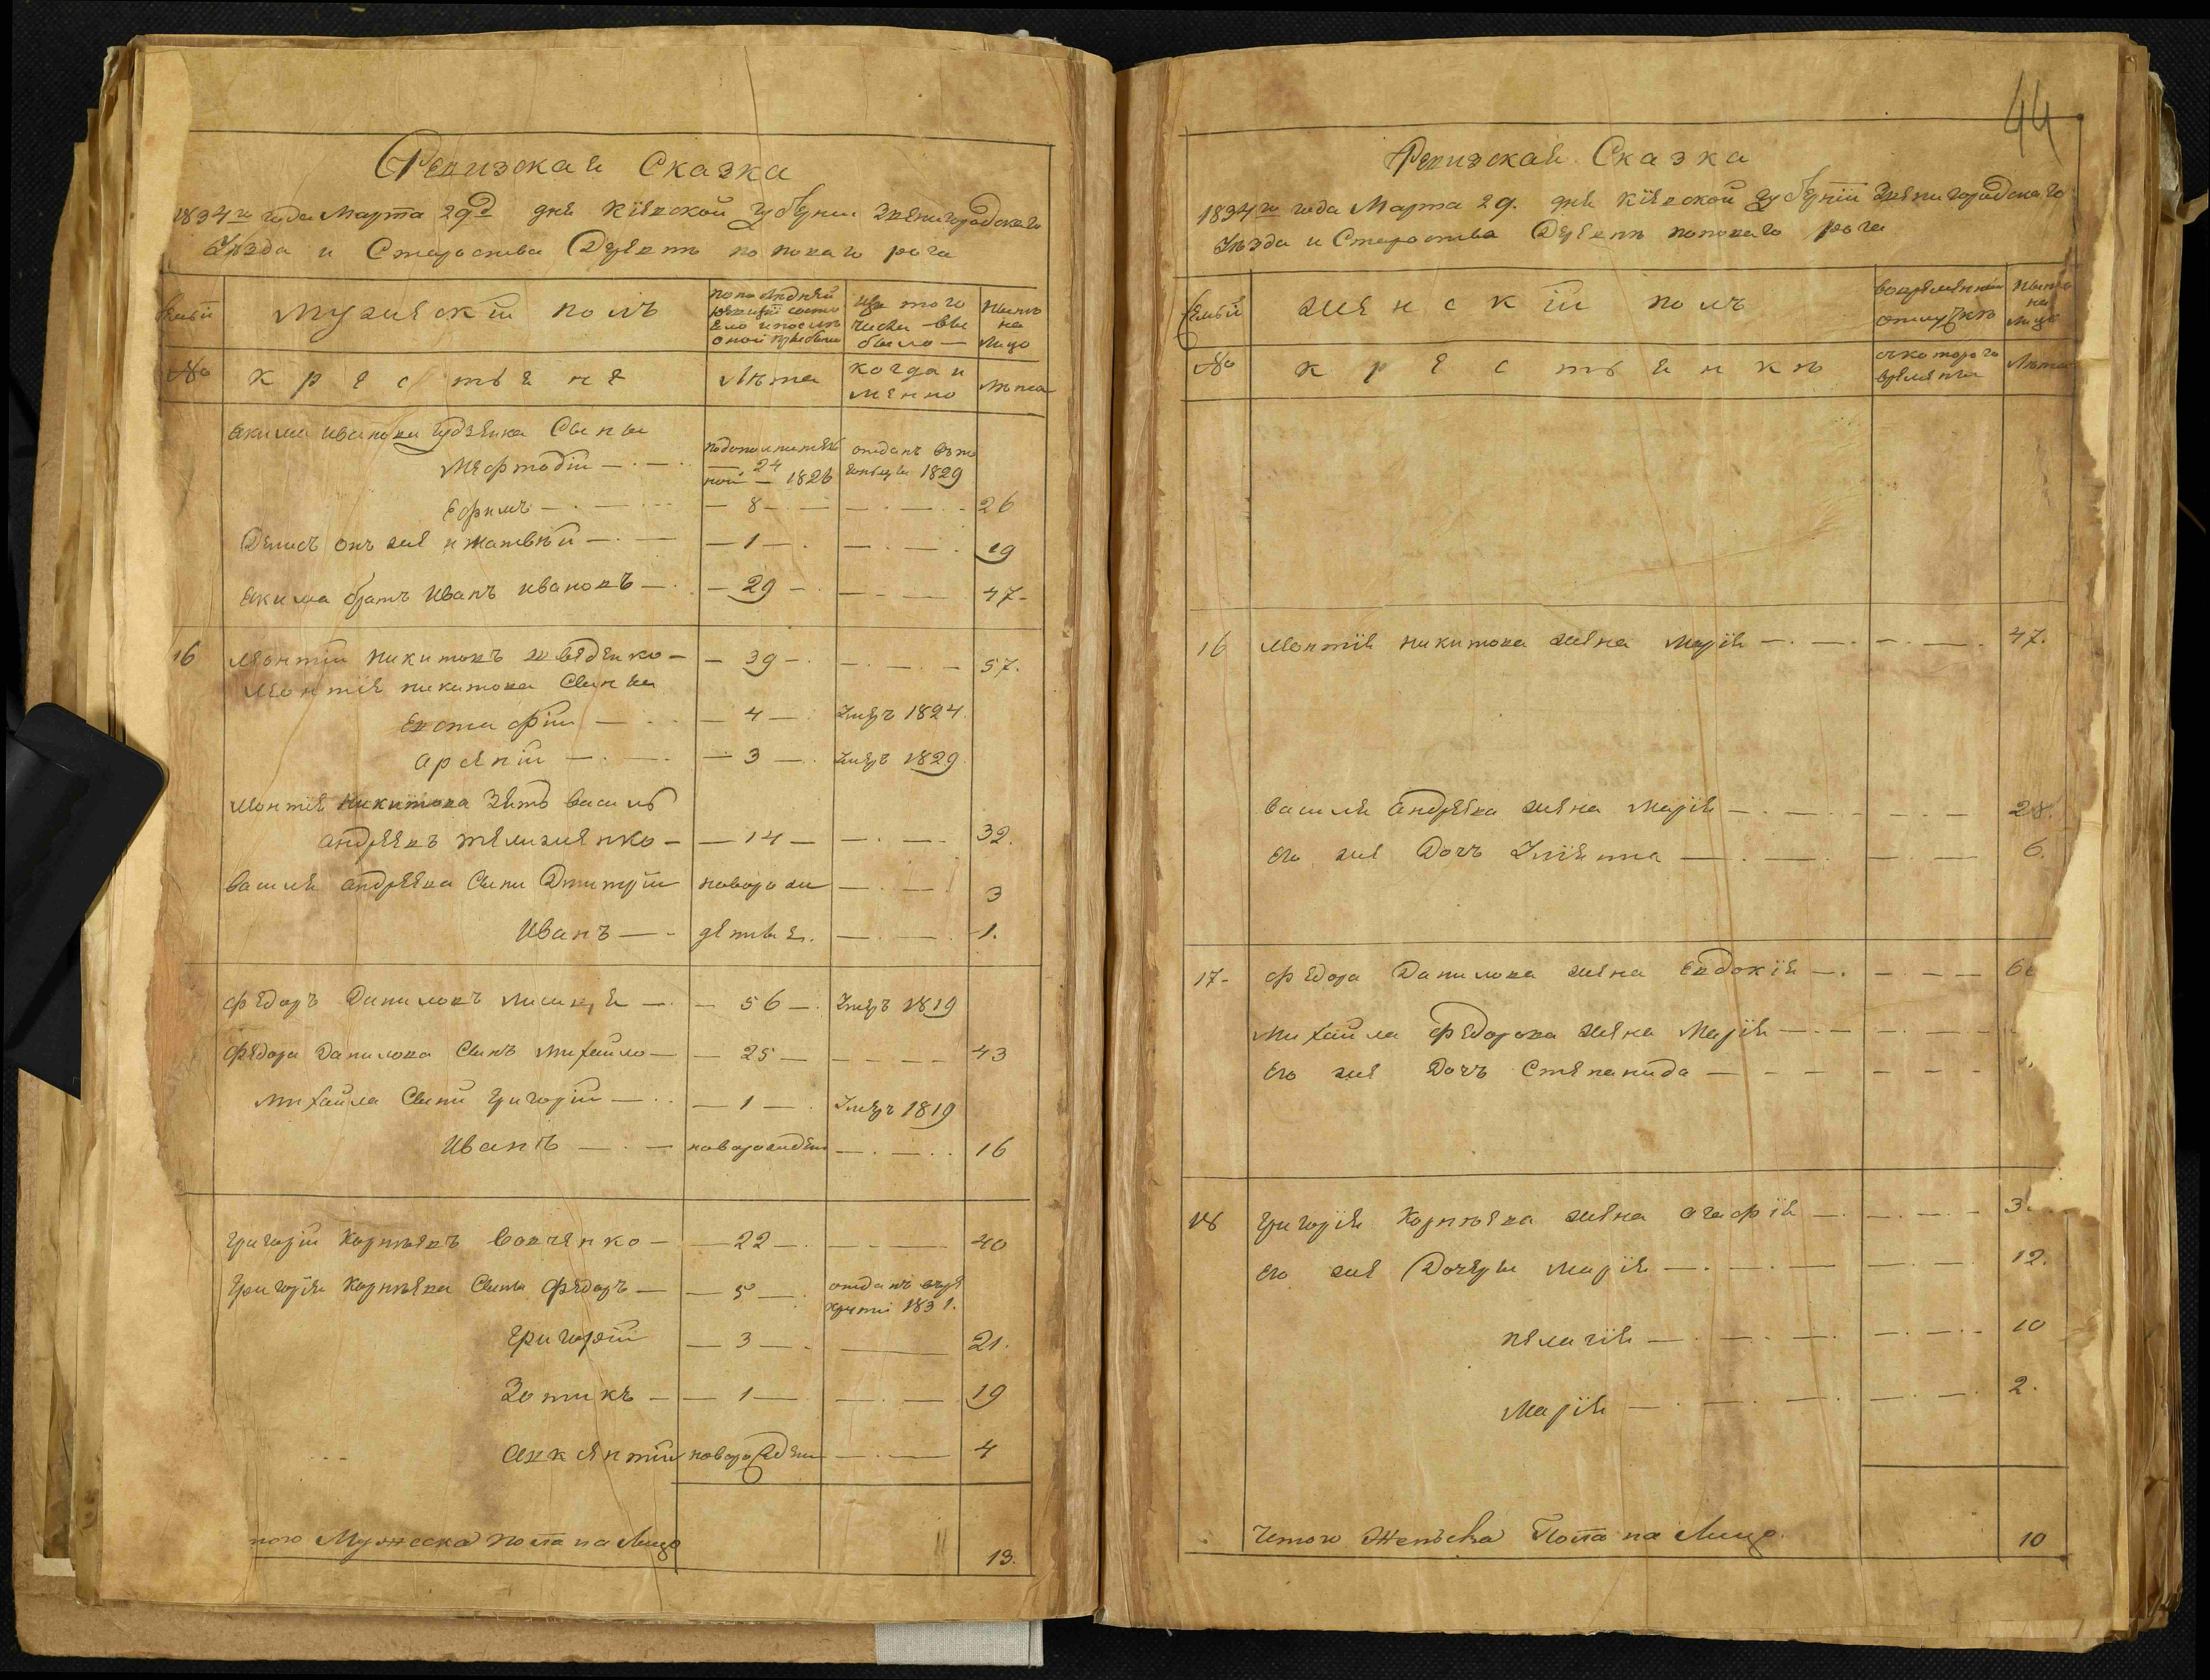 Ревизская Сказка
1834го года Марта 29д дня Кіевской губернии Звенигородскаго
Уѣзда и Староства Деревни поповаго рога
мужескій полъ
по последней ревизіи состояло и после оной прибыло
изъ того числа выбыло
Нынѣ на лицо
№
крестьяне
Лѣта
когда именно
Лѣта
Екима Иванова Сыны
Мефтодій — 24 — 1826 отданъ 1829
Ефимъ — 8 — 26
Денисъ онъ же и Матвѣй — 1 — 19
Екима братъ Иванъ Ивановъ — 29 — 47
16 Леонтій Никитовъ Шведенко — 39 — 57.
Леонтія Никитова Сыны
Евстафій — 4 — Умеръ 1824.
Арсеній — 3 — Умеръ 1829.
Леонтія Никитова Зять Василь
Андреевъ Телиженко — 14 — 32.
Василя Андреева Сыны Дмитрій новорож — 3
Иванъ — денные. — 1.
Федоръ Даниловъ — 56 — Умеръ 1819
Федора Данилова Сынъ Михайло — 25 — 43
Михайла Сыны Григорій — 1 — Умеръ 1819
Иванъ — новорожден — 16
Григорій Корнѣевъ Вовченко — 22 — 40
Григорія Корнѣева Сыны Федоръ — 5 — отданъ въ рекруты 1831.
Григорій — 3 — 21.
Зотикъ — 1 — 19
Авксентій новорожден — 4
того Мужеска пола на Лицо 13.
44
Ревизская Сказка
1834го года Марта 29. дня Кіевской губерніи Звенигородскаго
Уѣзда и Староства Деревни поповаго рога
Семьи
женскій полъ
во временной отлучкѣ
Нынѣ на лицо
№
крестьянкѣ
съ котораго времени
Лѣта
16 Леонтія Никитова жена Марія — 47.
Василя Андреева жена Марія — 28.
Его же Дочь Уліянна — 6.
17 Федора Данилова жена Евдокія —
Михайла Федорова жена Марія —
Его же Дочь Степанида —
18 Григорія Корнѣева жена Агафія —
Его же Дочери Марія — 12.
Пелагія — 10
Марія — 2.
Итого Женьска Пола на Лицо 10